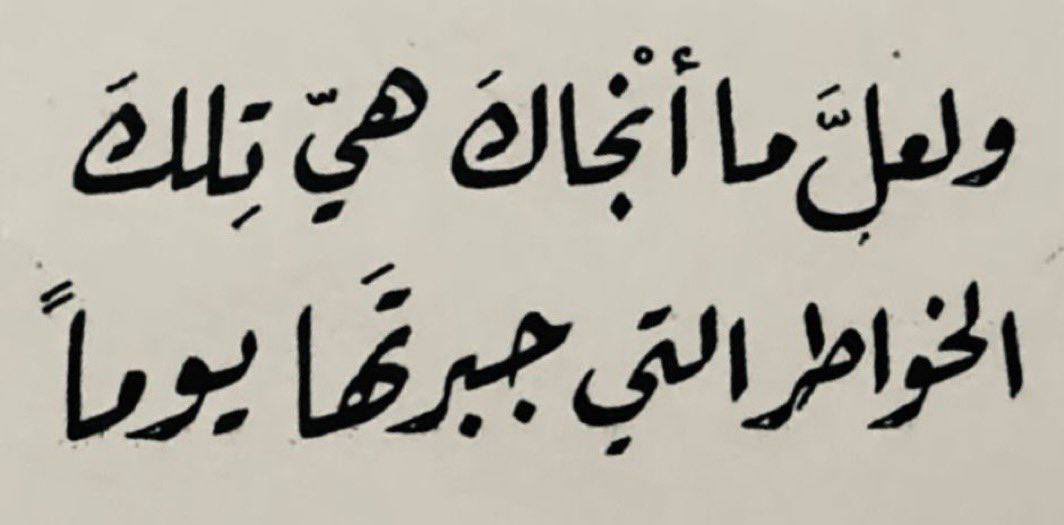 ولعلَّ ما أنْجاكَ هيّ تِلكَ
الخواطر التي جبرتَها يوماً